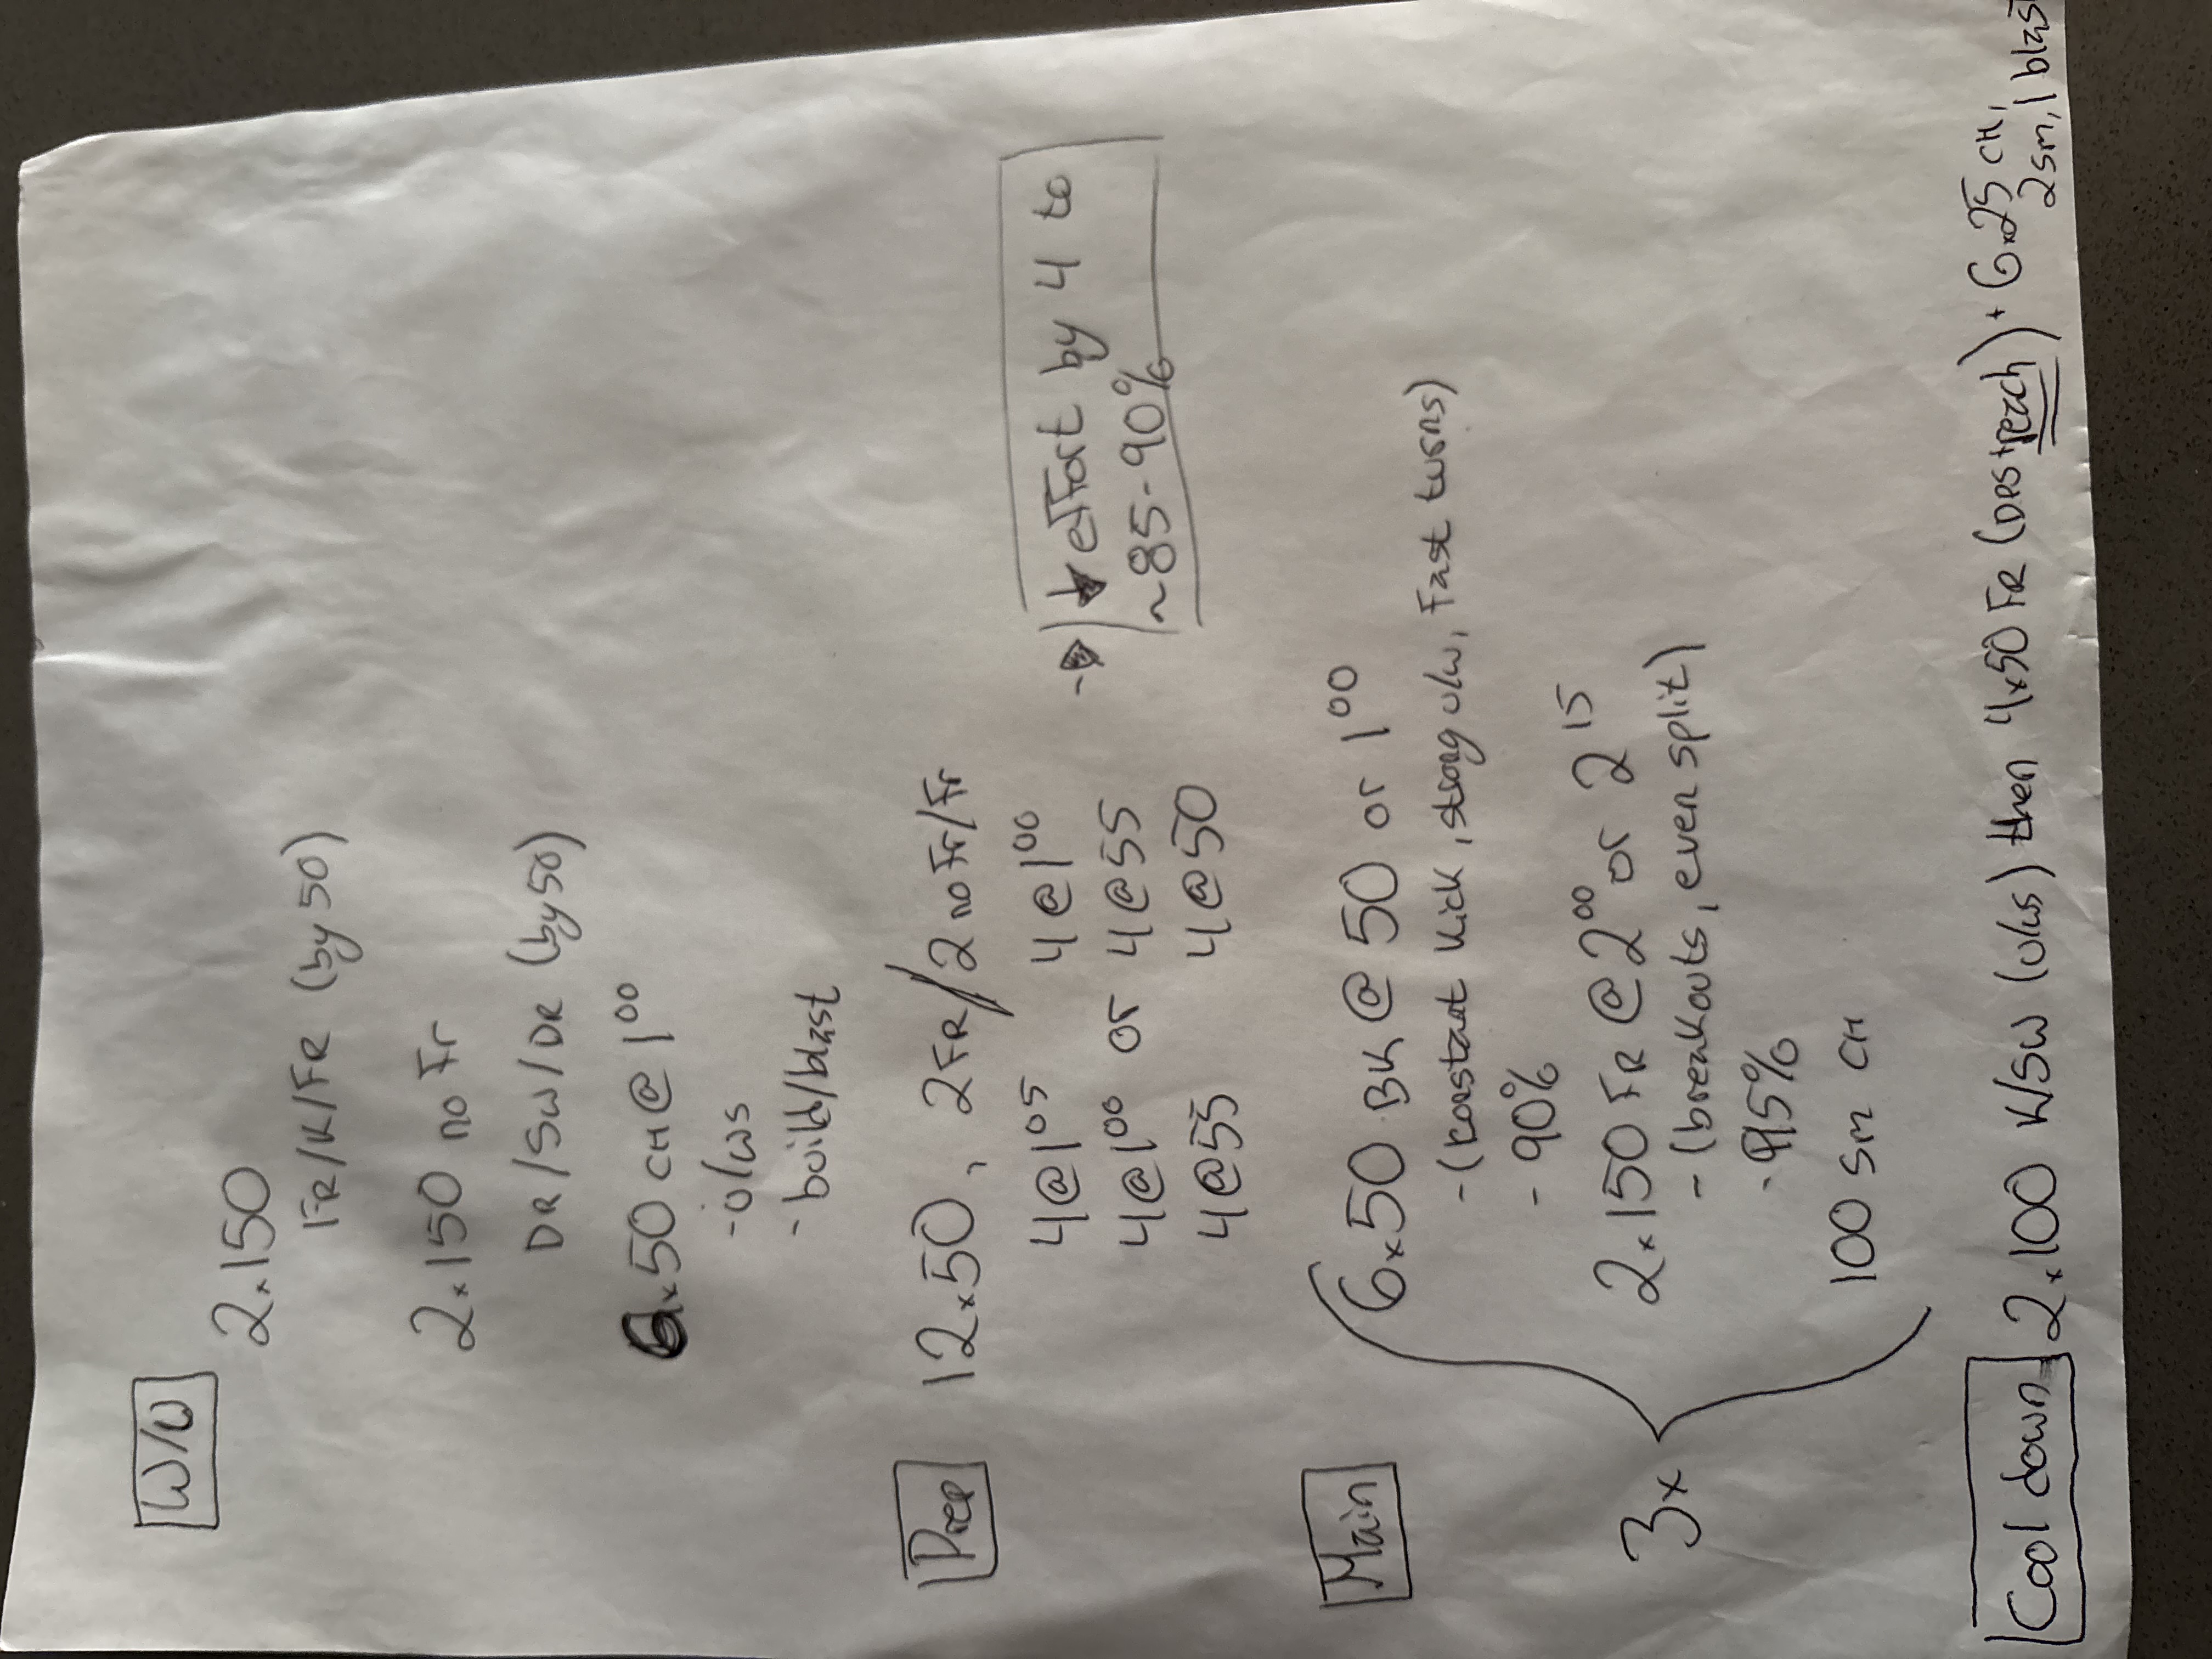 W/U
2x150
FR/K/FR (by 50)
2x150 no Fr
DR/SW/DR (by 50)
6x50 CH @ 1⁰⁰
- u/ws
- build/blast
Prep 12x50, 2FR/2 no Fr/Fr
4@1⁰⁵ 4@1⁰⁰
4@1⁰⁰ or 4@55
4@55 4@50
→ ↓ effort by 4 to
~85-90%
Main
3x
6x50 BK @ 50 or 1⁰⁰
- (constant kick, strong u/w, fast turns)
- 90%
2x150 FR @ 2⁰⁰ or 2¹⁵
- (breakouts, even split)
- 95%
100 Sm CH
Cool down 2x100 K/SW (u/ws) then 4x50 FR (DPS + reach) + 6x25 CH,
2 sm, 1 blast